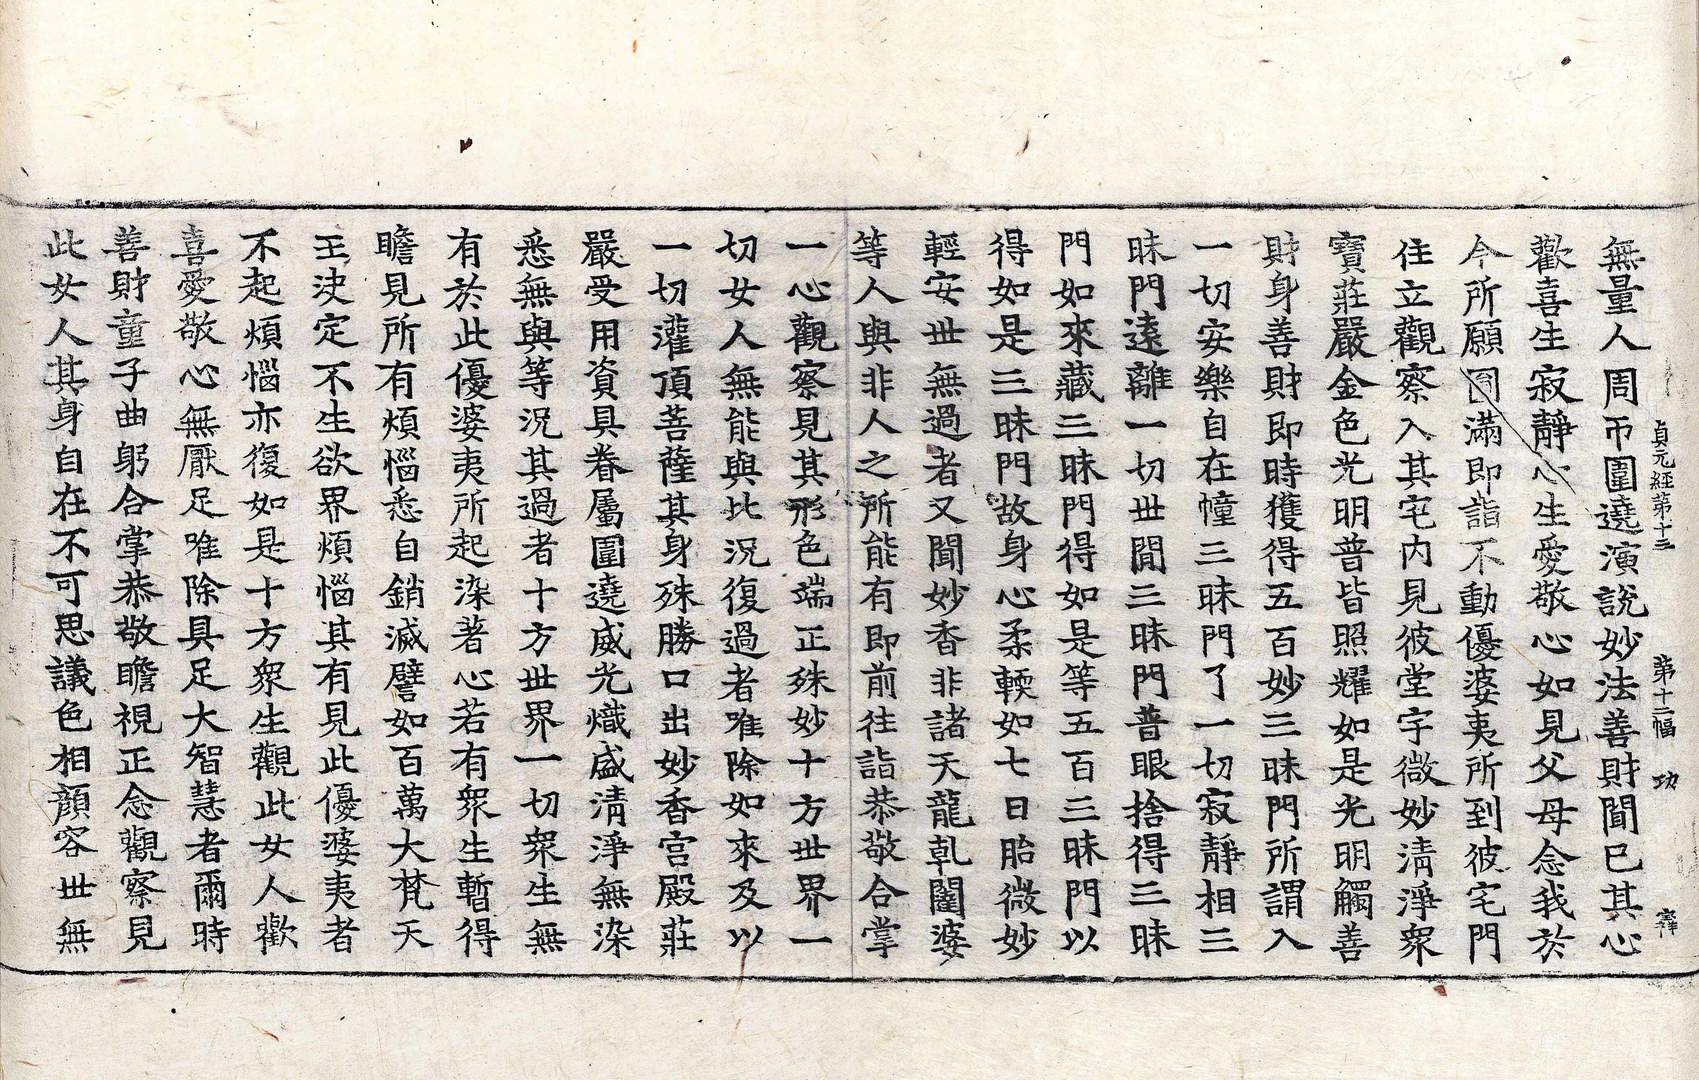 貞元經第十三　第十二幅　功
無量人周帀圍遶演說妙法善財聞已其心
歡喜生寂靜心生愛敬心如見父母念我於
今所願圓滿即詣不動優婆夷所到彼宅門
住立觀察入其宅內見彼堂宇微妙清淨眾
寶莊嚴金色光明普皆照耀如是光明觸善
財身善財即時獲得五百妙三昧門所謂入
一切安樂自在幢三昧門了一切寂靜相三
昧門遠離一切世間三昧門普眼捨得三昧
門如來藏三昧門得如是等五百三昧門以
得如是三昧門故身心柔輭如七日胎微妙
輕安世無過者又聞妙香非諸天龍乹闥婆
等人與非人之所能有即前往詣恭敬合掌
一心觀察見其形色端正殊妙十方世界一
切女人無能與比況復過者唯除如來及以
一切灌頂菩薩其身殊勝口出妙香宮殿莊
嚴受用資具眷屬圍遶威光熾盛清淨無染
悉無與等況其過者十方世界一切眾生無
有於此優婆夷所起染著心若有眾生暫得
瞻見所有煩惱悉自銷滅譬如百萬大梵天
王決定不生欲界煩惱其有見此優婆夷者
不起煩惱亦復如是十方眾生觀此女人歡
喜愛敬心無厭足唯除具足大智慧者爾時
善財童子曲躬合掌恭敬瞻視正念觀察見
此女人其身自在不可思議色相顏容世無